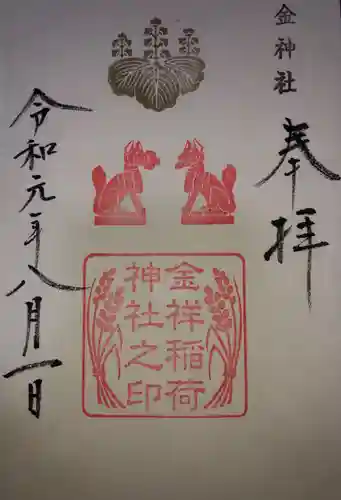 金神社
奉拝
金祥稲荷
神社之印
令和元年八月一日